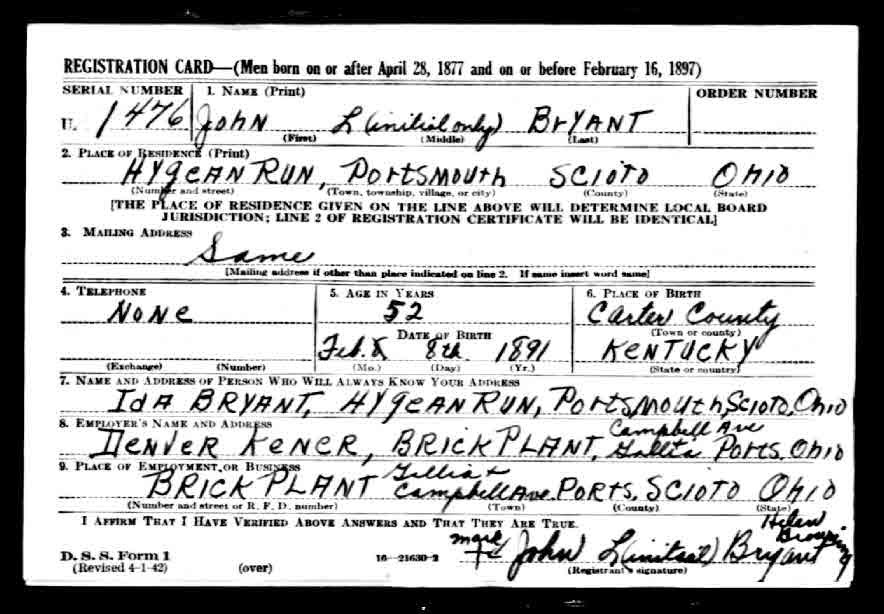 REGISTRATION CARD—(Men born on or after April 28, 1877 and on or before February 16, 1897)
SERIAL NUMBER 1. NAME (Print) ORDER NUMBER
U. 1476 John L (initial only) BryANT
(First) (Middle) (Last)
2. PLACE OF RESIDENCE (Print)
HYgeAN RUN, PORTSMOUTH SCIOTO OHIO
(Number and street) (Town, township, village, or city) (County) (State)
[THE PLACE OF RESIDENCE GIVEN ON THE LINE ABOVE WILL DETERMINE LOCAL BOARD
JURISDICTION; LINE 2 OF REGISTRATION CERTIFICATE WILL BE IDENTICAL]
3. MAILING ADDRESS
Same
[Mailing address if other than place indicated on line 2. If same insert word same]
4. TELEPHONE 5. AGE IN YEARS 6. PLACE OF BIRTH
NONE 52 Carter County
DATE OF BIRTH (Town or county)
Feb. 8th 1891 KENTUCKY
(Exchange) (Number) (Mo.) (Day) (Yr.) (State or country)
7. NAME AND ADDRESS OF PERSON WHO WILL ALWAYS KNOW YOUR ADDRESS
IdA BRYANT, HYgeAN RUN, PORTSMOUTH, SCIOTO, OHIO
8. EMPLOYER'S NAME AND ADDRESS Campbell Ave
DENVER , BRICK PLANT, Ports. Ohio
9. PLACE OF EMPLOYMENT OR BUSINESS Gallia &
BRICK PLANT Campbell Ave. PORTS. SCIOTO OHIO
(Number and street or R. F. D. number) (Town) (County) (State)
I AFFIRM THAT I HAVE VERIFIED ABOVE ANSWERS AND THAT THEY ARE TRUE.
Helen
mark John L (initial) Bryant
D. S. S. Form 1
(Revised 4-1-42) (over) 16—21630-2 (Registrant's signature)